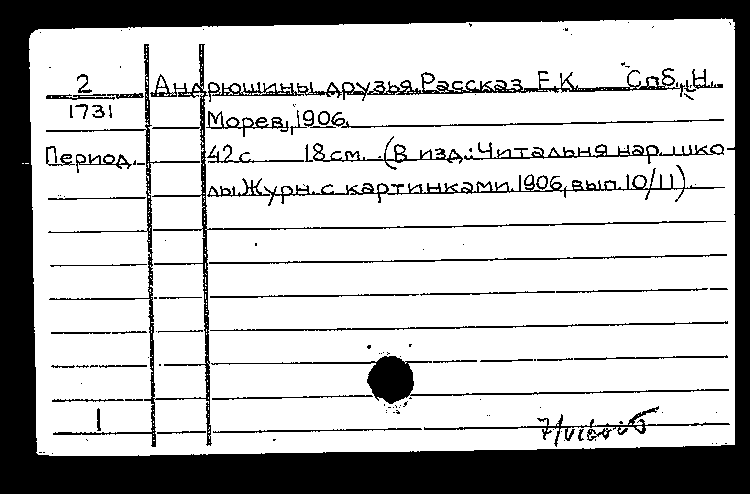 2 Андрюшины друзья. Рассказ Е.К. Спб., Н.
1731 Морев, 1906.
Период. 42 с. 18 см. (В изд.: Читальня нар. шко-
лы. Журн. с картинками. 1906, вып. 10/11).
1